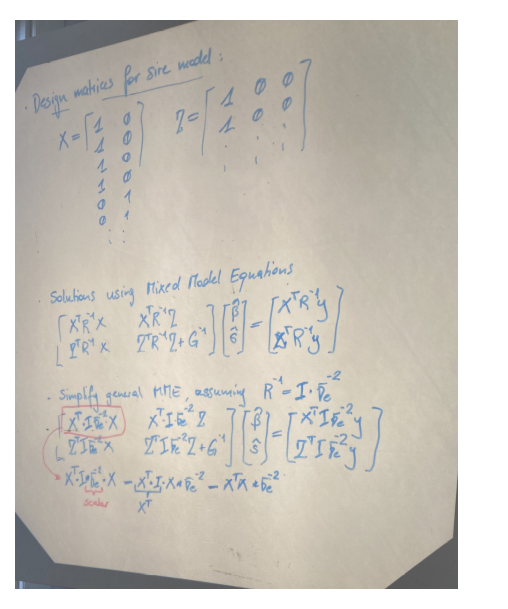 · Design matrices for sire model:
X = [ 1 0    Z = [ 1 0 0
1 0    1 0 0
1 0    : : :
1 0
0 1
0 1
: :
· Solutions using Mixed Model Equations
[ XᵀR⁻¹X    XᵀR⁻¹Z ] [ β̂ ] = [ XᵀR⁻¹y ]
[ ZᵀR⁻¹X    ZᵀR⁻¹Z + G⁻¹ ] [ ŝ ] [ ZᵀR⁻¹y ]
· Simplify general MME, assuming R⁻¹ = I · σₑ⁻²
[ Xᵀ·Iσₑ⁻²·X    XᵀIσₑ⁻²Z ] [ β̂ ] = [ XᵀIσₑ⁻²y ]
[ ZᵀIσₑ⁻²X    ZᵀIσₑ⁻²Z + G⁻¹ ] [ ŝ ] [ ZᵀIσₑ⁻²y ]
Xᵀ·I*σₑ⁻²·X – Xᵀ·I·X*σₑ⁻² – XᵀX*σₑ⁻²
scalar    Xᵀ